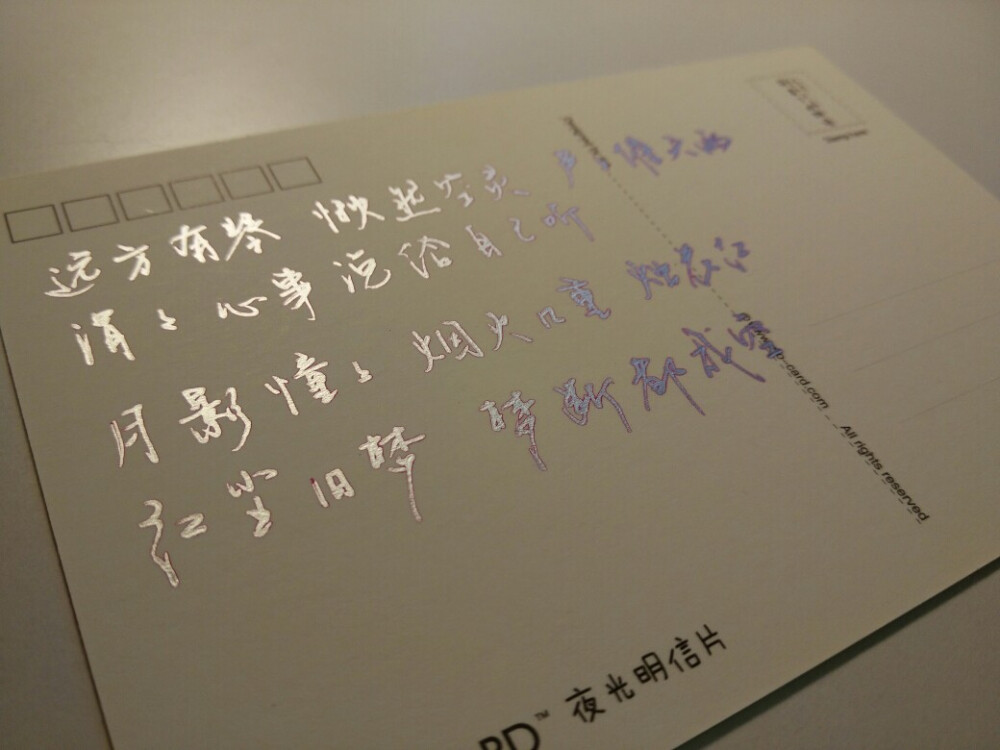 远方有琴 愀然空灵 声々催天雨
涓々心事说给自己听
月影憧々 烟火几重 烛花红
红尘旧梦 梦断都成空
-card.com All rights reserved
RD™ 夜光明信片